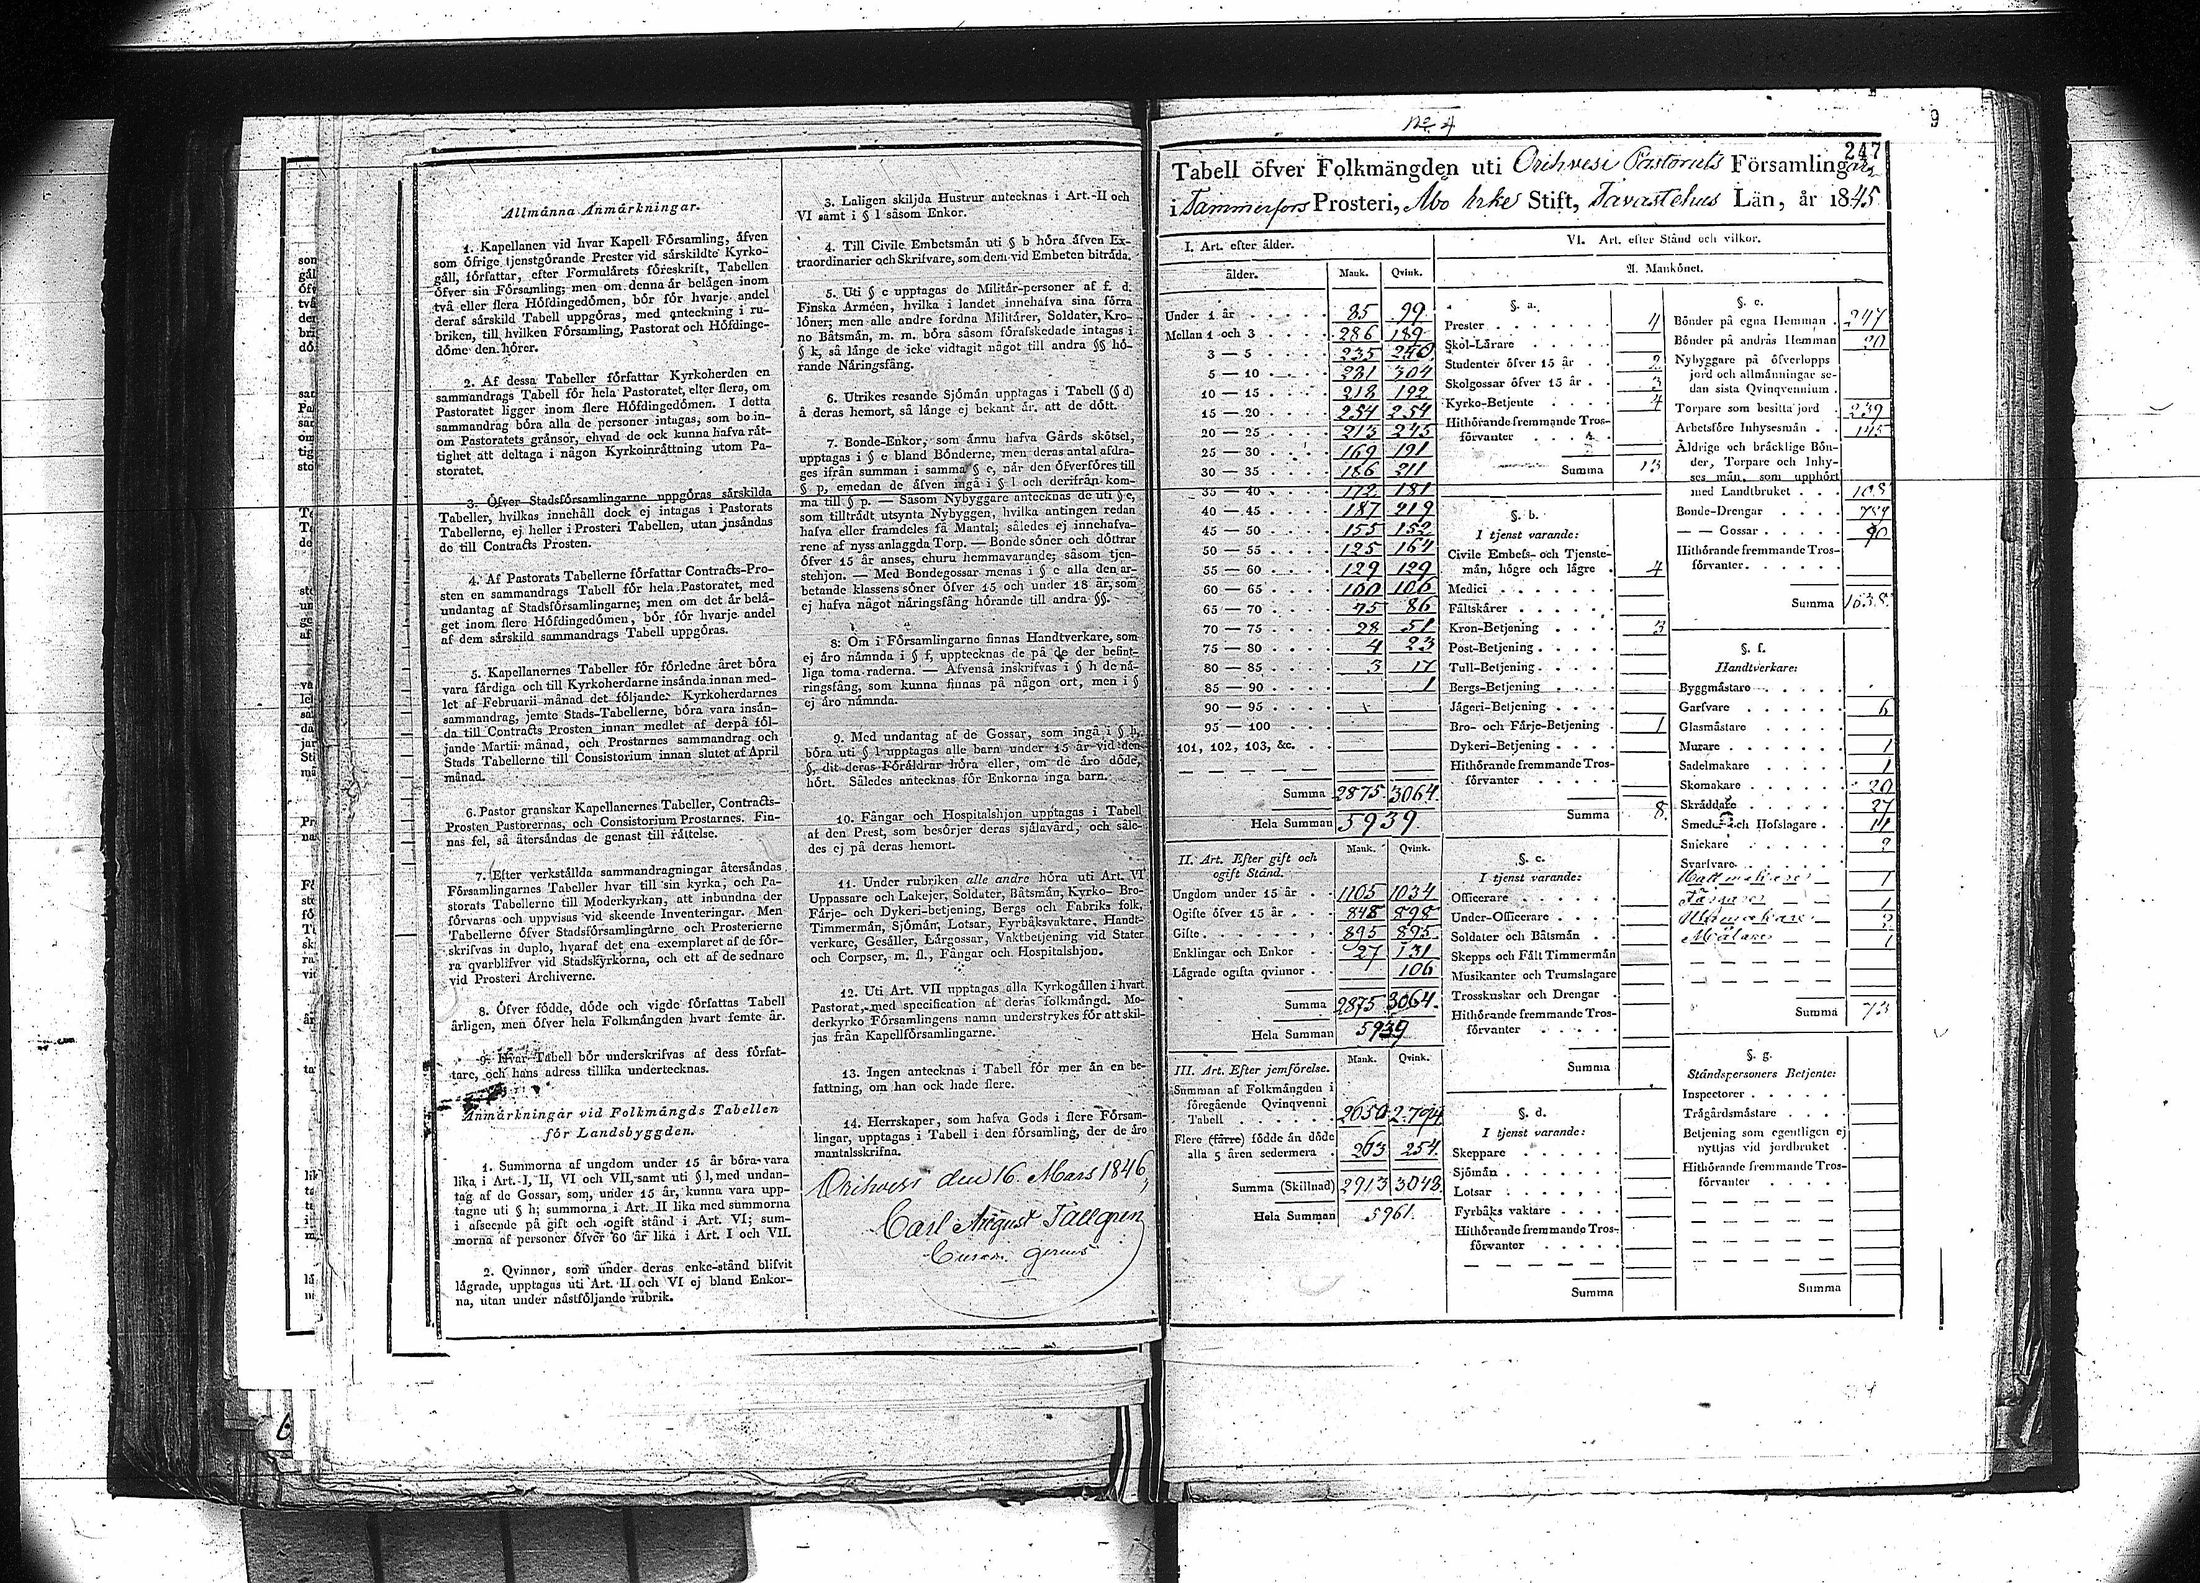 Allmänna Anmärkningar.
1. Kapellanen vid hvar Kapell Församling, äfven
som öfrige tjenstgörande Prester vid särskildte Kyrko-
gäll, författar, efter Formulärets föreskrift, Tabellen
öfver sin Församling; men om denna är belägen inom
två eller flera Höfdingedömen, bör för hvarje andel
deraf särskild Tabell uppgöras, med anteckning i ru-
briken, till hvilken Församling, Pastorat och Höfdinge-
döme den hörer.
2. Af dessa Tabeller författar Kyrkoherden en
sammandrags Tabell för hela Pastoratet, eller flera, om
Pastoratet ligger inom flere Höfdingedömen. I detta
sammandrag böra alla de personer intagas, som bo in-
om Pastoratets gränsor, ehvad de ock kunna hafva rät-
tighet att deltaga i någon Kyrkoinrättning utom Pa-
storatet.
3. Öfver Stadsförsamlingarne uppgöras särskilda
Tabeller, hvilkas innehåll dock ej intagas i Pastorats
Tabellerne, ej heller i Prosteri Tabellen, utan insändas
de till Contracts Prosten.
4. Af Pastorats Tabellerne författar Contracts-Pro-
sten en sammandrags Tabell för hela Pastoratet, med
undantag af Stadsförsamlingarne; men om det är belä-
get inom flere Höfdingedömen, bör för hvarje andel
af dem särskild sammandrags Tabell uppgöras.
5. Kapellanernes Tabeller för förledne året böra
vara färdiga och till Kyrkoherdarne insända innan med-
let af Februarii månad det följande: Kyrkoherdarnes
sammandrag, jemte Stads-Tabellerne, böra vara insän-
da till Contracts Prosten innan medlet af derpå föl-
jande Martii månad, och Prostarnes sammandrag och
Stads Tabellerne till Consistorium innan slutet af April
månad.
6. Pastor granskar Kapellanernes Tabeller, Contracts-
Prosten Pastorernas, och Consistorium Prostarnes. Fin-
nas fel, så återsändas de genast till rättelse.
7. Efter verkställda sammandragningar återsändas
Församlingarnes Tabeller hvar till sin kyrka, och Pa-
storats Tabellerne till Moderkyrkan, att inbundna der
förvaras och uppvisas vid skeende Inventeringar. Men
Tabellerne öfver Stadsförsamlingarne och Prosterierne
skrifvas in duplo, hvaraf det ena exemplaret af de för-
ra qvarblifver vid Stadskyrkorna, och ett af de sednare
vid Prosteri Archiverne.
8. Öfver födde, döde och vigde författas Tabell
årligen, men öfver hela Folkmängden hvart femte år.
9. Hvar Tabell bör underskrifvas af dess förfat-
tare, och hans adress tillika undertecknas.
Anmärkningar vid Folkmängds Tabellen
för Landsbyggden.
1. Summorna af ungdom under 15 år böra vara
lika i Art. I, II, VI och VII, samt uti § l, med undan-
tag af de Gossar, som, under 15 år, kunna vara upp-
tagne uti § h; summorna i Art. II lika med summorna
i afseende på gift och ogift stånd i Art. VI; sum-
morna af personer öfver 60 år lika i Art. I och VII.
2. Qvinnor, som under deras enke-stånd blifvit
lägrade, upptagas uti Art. II och VI ej bland Enkor-
na, utan under nästföljande rubrik.
3. Laligen skiljda Hustrur antecknas i Art. II och
VI samt i § l såsom Enkor.
4. Till Civile Embetsmän uti § b höra äfven Ex-
traordinarier och Skrifvare, som dem vid Embeten biträda.
5. Uti § c upptagas de Militär-personer af f. d.
Finska Arméen, hvilka i landet innehafva sina förra
löner; men alle andre fordna Militärer, Soldater, Kro-
no Båtsmän, m. m. böra såsom förafskedade intagas i
§ k, så länge de icke vidtagit något till andra §§ hö-
rande Näringsfång.
6. Utrikes resande Sjömän upptagas i Tabell (§ d)
å deras hemort, så länge ej bekant är, att de dött.
7. Bonde-Enkor, som ännu hafva Gårds skötsel,
upptagas i § e bland Bönderne, men deras antal afdra-
ges ifrån summan i samma § e, när den öfverföres till
§ p, emedan de äfven ingå i § l och derifrån kom-
ma till § p. — Såsom Nybyggare antecknas de uti § e,
som tillträdt utsynta Nybyggen, hvilka antingen redan
hafva eller framdeles få Mantal; således ej innehafva-
rene af nyss anlaggda Torp. — Bonde söner och döttrar
öfver 15 år anses, churu hemmavarande; såsom tjen-
stehjon. — Med Bondegossar menas i § e alla den ar-
betande klassens söner öfver 15 och under 18 år, som
ej hafva något näringsfång hörande till andra §§.
8. Om i Församlingarne finnas Handtverkare, som
ej äro nämnda i § f, upptecknas de på de der befint-
liga toma raderna. — Äfvenså inskrifvas i § h de nä-
ringsfång, som kunna finnas på någon ort, men i §
ej äro nämnda.
9. Med undantag af de Gossar, som ingå i § h,
böra uti § l upptagas alle barn under 15 år vid den
§, dit deras Föräldrar höra eller, om de äro döde,
hört. Således antecknas för Enkorna inga barn.
10. Fångar och Hospitalshjon upptagas i Tabell
af den Prest, som besörjer deras själavård, och såle-
des ej på deras hemort.
11. Under rubriken alle andre höra uti Art. VI
Uppassare och Lakejer, Soldater, Båtsmän, Kyrko- Bro-
Färje- och Dykeri-betjening, Bergs och Fabriks folk,
Timmermän, Sjömän, Lotsar, Fyrbåksvaktare, Handt-
verkare, Gesäller, Lärgossar, Vaktbetjening vid Stater
och Corpser, m. fl., Fångar och Hospitalshjon.
12. Uti Art. VII upptagas alla Kyrkogällen i hvart
Pastorat, med specification af deras folkmängd. Mo-
derkyrko Församlingens namn understrykes för att skil-
jas från Kapellförsamlingarne.
13. Ingen antecknas i Tabell för mer än en be-
fattning, om han ock hade flere.
14. Herrskaper, som hafva Gods i flere Försam-
lingar, upptagas i Tabell i den församling, der de äro
mantalsskrifna.
Orihvesi den 16 Mars 1846
Carl August Tallgren
No 4
9
247
Tabell öfver Folkmängden uti Orihvesi Pastorats Församlingar
i Tammerfors Prosteri, Åbo Erke Stift, Tavastehus Län, år 1845
I. Art. efter ålder.
ålder. Mank. Qvink.
Under 1 år 85 99
Mellan 1 och 3 286 189
3 — 5 235 240
5 — 10 281 304
10 — 15 218 192
15 — 20 254 254
20 — 25 213 245
25 — 30 169 191
30 — 35 186 211
35 — 40 172 181
40 — 45 187 219
45 — 50 155 152
50 — 55 125 164
55 — 60 129 129
60 — 65 100 106
65 — 70 75 86
70 — 75 28 51
75 — 80 4 23
80 — 85 3 17
85 — 90 1
90 — 95
95 — 100
101, 102, 103, &c.
Summa 2875 3064
Hela Summan 5939
Mank. Qvink.
II. Art. Efter gift och
ogift Stånd.
Ungdom under 15 år 1105 1034
Ogifte öfver 15 år 848 898
Gifte 895 895
Enklingar och Enkor 27 131
Lägrade ogifta qvinnor 106
Summa 2875 3064
Hela Summan 5939
Mank. Qvink.
III. Art. Efter jemförelse.
Summan af Folkmängden i
föregående Qvinqvenni
Tabell 2650 2794
Flere (färre) födde än döde
alla 5 åren sedermera 263 254
Summa (Skillnad) 2913 3048
Hela Summan 5961
VI. Art. efter Stånd och vilkor.
A. Mankönet.
§. a.
Prester 4
Skol-Lärare
Studenter öfver 15 år 2
Skolgossar öfver 15 år 3
Kyrko-Betjente 4
Hithörande fremmande Tros-
förvanter
Summa 13
§. b.
I tjenst varande:
Civile Embets- och Tjenste-
män, högre och lägre 4
Medici
Fältskärer
Kron-Betjening 3
Post-Betjening
Tull-Betjening
Bergs-Betjening
Jägeri-Betjening
Bro- och Färje-Betjening 1
Dykeri-Betjening
Hithörande fremmande Tros-
förvanter
Summa 8
§. c.
I tjenst varande:
Officerare
Under-Officerare
Soldater och Båtsmän
Skepps och Fält Timmermän
Musikanter och Trumslagare
Trosskuskar och Drengar
Hithörande fremmande Tros-
förvanter
Summa
§. d.
I tjenst varande:
Skeppare
Sjömän
Lotsar
Fyrbåks vaktare
Hithörande fremmande Tros-
förvanter
Summa
§. e.
Bönder på egna Hemman 247
Bönder på andras Hemman 20
Nybyggare på öfverlopps
jord och allmänningar se-
dan sista Qvinqvennium
Torpare som besitta jord 239
Arbetsföre Inhysesmän 145
Åldrige och bräcklige Bön-
der, Torpare och Inhy-
ses män, som upphört
med Landtbruket
Bonde-Drengar
— — Gossar 90
Hithörande fremmande Tros-
förvanter
Summa 1638
§. f.
Handtverkare:
Byggmästare
Garfvare 6
Glasmästare
Murare 1
Sadelmakare 1
Skomakare 20
Skräddare 27
Smeder och Hofslagare
Snickare 2
Svarfvare
Hattmakare 1
Färgare 1
Målare 1
Summa 73
§. g.
Ståndspersoners Betjente:
Inspectorer
Trägårdsmästare
Betjening som egentligen ej
nyttjas vid jordbruket
Hithörande fremmande Tros-
förvanter
Summa